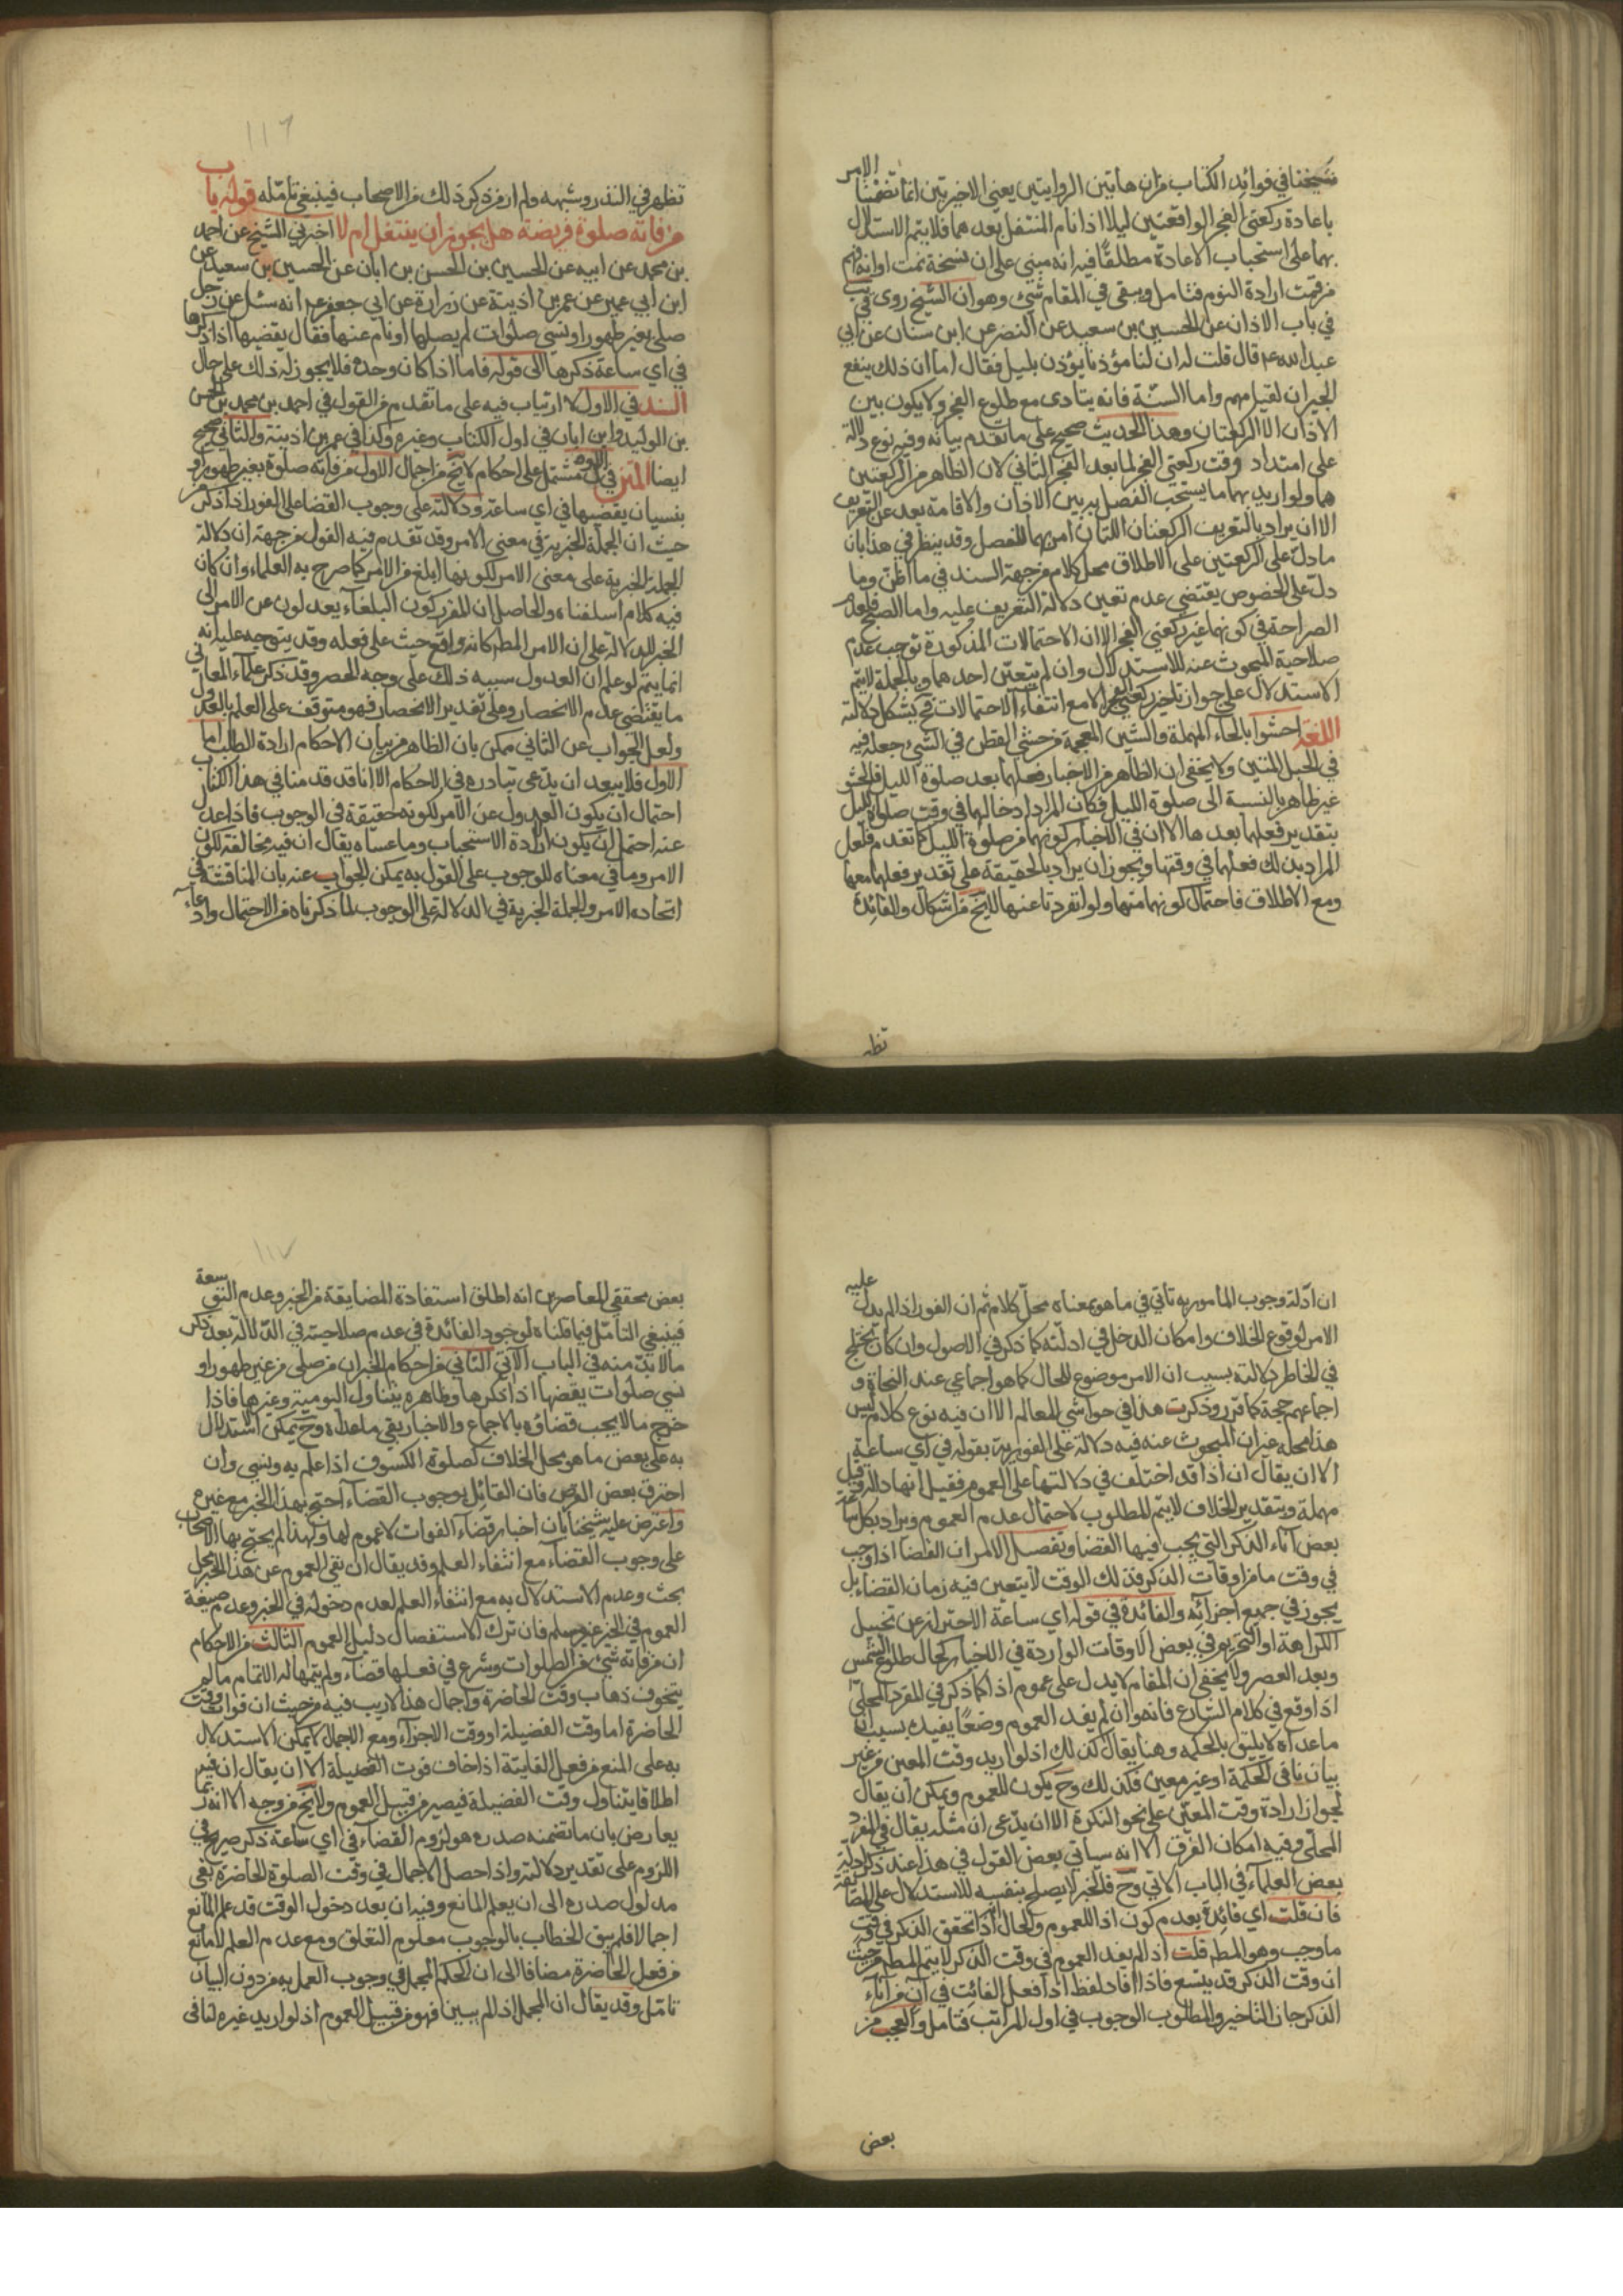 شيخنا في فوائد الكتاب من ان هاتين الروايتين يعني الاخيرتين انما تضمنتا الامر
باعادة ركعتي الفجر الواقعتين ليلا اذا نام المتنفل بعدهما فلا يتم الاستدلال
بهما على استحباب الاعادة مطلقا فيه انه مبني على ان نسخة نمت اوانه فهم
من قمت ارادة النوم فتامل وبقي في المقام شيء وهو ان الشيخ روى في يب
في باب الاذان عن الحسين بن سعيد عن النضر عن ابن سنان عن ابي
عبد الله عم قال قلت له ان لنا مؤذنا يؤذن بليل فقال اما ان ذلك ينفع
الجيران لقيامهم واما السنة فانه يتادى مع طلوع الفجر ولا يكون بين
الاذان الا الركعتان وهذا الحديث صحيح على ما تقدم بيانه وفيه نوع دلالة
على امتداد وقت ركعتي الفجر لما بعد الفجر الثاني لان الظاهر من الركعتين
هما ولو اريد بهما ما يستحب الفصل به بين الاذان والاقامة بعد عن التعريف
الا ان يراد بالتعريف الركعتان اللتان امر بهما للفصل وقد ينظر في هذا بان
ما دل على الركعتين على الاطلاق محل كلام من جهة السند في ما اظن وما
دل على الخصوص يقتضي عدم تعين دلالة التعريف عليه واما الصبح فلعدم
الصراحة في كونهما غير ركعتي الفجر الا ان الاحتمالات المذكورة توجب عدم
صلاحية المبحوث عنه للاستدلال وان لم يتعين احدهما وبالجملة لا يتم
الاستدلال على جواز تاخير ركعتي الفجر الا مع انتفاء الاحتمالات فح يشكل دلالته
اللغة احشوا بالحاء المهملة والشين المعجمة من حشى القطن في الشيء جعله فيه
في الحبل المتين ولا يخفى ان الظاهر من الاخبار فعلهما بعد صلوة الليل فالحشو
غير ظاهر بالنسبة الى صلوة الليل فكان المراد ادخالهما في وقت صلوة الليل
بتقدير فعلهما بعدها الا ان في الاخبار كونهما من صلوة الليل كما تقدم فلعل
المراد بذلك فعلهما في وقتها ويجوز ان يراد بالحقيقة على تقدير فعلهما معها
ومع الاطلاق فاحتمال كونهما منها ولو انفردتا عنها لا يخ من اشكال والفائدة
تظهر
تظهر في النذر وشبهه ولم ار من ذكر ذلك من الاصحاب فينبغي تامله قوله باب
من فاته صلوة فريضة هل يجوز ان يتنفل ام لا اخبرني الشيخ عن احمد
بن محمد عن ابيه عن الحسين بن الحسن بن ابان عن الحسين بن سعيد عن
ابن ابي عمير عن عمر بن اذينة عن زرارة عن ابي جعفر عم انه سئل عن رجل
صلى بغير طهور او نسي صلوات لم يصلها او نام عنها فقال يقضيها اذا ذكرها
في اي ساعة ذكرها الى قوله فاما اذا كان وحده فلا يجوز له ذلك على حال
السند في الاول لا ارتياب فيه على ما تقدم من القول في احمد بن محمد بن الحسن
بن الوليد وابن ابان في اول الكتاب وغيره وكذا في عمر بن اذينة والثاني صحيح
ايضا المتن في الاول مشتمل على احكام لا يخ من اجمال الاول من فاته صلوة بغير طهور او
بنسيان يقضيها في اي ساعة ودلالته على وجوب القضا على الفور اذا ذكر من
حيث ان الجملة الخبرية في معنى الامر وقد تقدم فيه القول من جهة ان دلالة
الجملة الخبرية على معنى الامر لكونها ابلغ من الامر كما صرح به العلماء وان كان
فيه كلام اسلفناه والحاصل ان المقرر كون البلغاء يعدلون عن الامر الى
الخبر للدلالة على ان الامر المطم كانه واقع حيث على فعله وقد يتوجه عليه انه
انما يتم لو علم ان العدول سببه ذلك على وجه الحصر وقد ذكر علماء المعاني
ما يقتضي عدم الانحصار وعلى تقدير الانحصار فهو متوقف على العلم بالعدول
ولعل الجواب عن الثاني ممكن بان الظاهر من بيان الاحكام ارادة الطلب اما
الاول فلا يبعد ان يدعى تبادره في الاحكام الا انا قد قدمنا في هذا الكتاب
احتمال ان يكون العدول عن الامر لكونه حقيقة في الوجوب فاذا عدل
عنه احتمل ان يكون ارادة الاستحباب وما عساه يقال ان فيه مخالفة لكون
الامر وما في معناه للوجوب على القول به يمكن الجواب عنه بان المناقشة في
اتحاد الامر والجملة الخبرية في الدلالة على الوجوب لما ذكرناه من الاحتمال وادعاء
ان ادلة وجوب المامور به تاتي في ما هو بمعناه محل كلام ثم ان الفور اذا لم يدل عليه
الامر لوقوع الخلاف وامكان الدخل في ادلته كما ذكر في الاصول وان كان يختلج
في الخاطر دلالته بسبب ان الامر موضوع للحال كما هو اجماعي عند النحاة و
اجماعهم حجة كما قرر وذكرت هذا في حواشي المعالم الا ان فيه نوع كلام ليس
هذا محله غير ان المبحوث عنه فيه دلالة على الفورية بقوله في اي ساعة
الا ان يقال ان اذا قد اختلف في دلالتها على العموم فقيل انها دالة وقيل
مهملة وبتقدير الخلاف لا يتم المطلوب لاحتمال عدم العموم ويراد بكل ساعة
بعض آناء الذكر التي يجب فيها القضا وتفصيل الامر ان القضا اذا وجب
في وقت ما من اوقات الذكر فذلك الوقت لا يتعين فيه زمان القضاء بل
يجوز في جميع اجزائه والفائدة في قوله اي ساعة الاحتراز عن تخييل
الكراهة او التحريم في بعض الاوقات الواردة في الاخبار كحال طلوع الشمس
وبعد العصر ولا يخفى ان المقام لا يدل على عموم اذا كما ذكر في المفرد المحلى
اذا وقع في كلام الشارع فانه وان لم يفد العموم وضعا يفيد بسبب ان
ما عداه لا يليق بالحكمة وهنا يقال كذلك اذ لو اريد وقت المعين من غير
بيان نافى الحكمة او غير معين فكذلك وح يكون للعموم ويمكن ان يقال
لجواز ارادة وقت المعين على نحو النكرة الا ان يدعى ان مثله يقال في المفرد
المحلى وفيه امكان الفرق الا انه سياتي بعض القول في هذا عند ذكر ادلة
بعض العلماء في الباب الاتي وح فالخبر لا يصلح بنفسه للاستدلال على المضايقة
فان قلت اي فائدة بعدم كون اذا للعموم والحال انه اذا تحقق الذكر في وقت
ما وجب وهو المطم قلت اذا لم يفد العموم في وقت الذكر لا يتم المطم من حيث
ان وقت الذكر قد يتسع فاذا افاد لفظ اذا فعل الفائت في آن من آناء
الذكر جاز التاخير والمطلوب الوجوب في اول المراتب فتامل والعجب من
بعض
بعض محققي المعاصرين انه اطلق استفادة المضايقة من الخبر وعدم التوسعة
فينبغي التامل فيما قلناه لوجود الفائدة في عدم صلاحيته في الدلالة بعد ذكر
ما لا بد منه في الباب الآتي الثاني من احكام الخبر ان من صلى من غير طهور او
نسي صلوات يقضها اذا ذكرها وظاهره يتناول اليومية وغيرها فاذا
خرج ما لا يجب قضاؤه بالاجماع والاخبار بقي ما عداه وح يمكن استدلال
به على بعض ما هو محل الخلاف كصلوة الكسوف اذا علم به ونسي وان
احترق بعض القرص فان القائل بوجوب القضاء احتج بهذا الخبر مع غيره
واعترض عليه شيخنا بان اخبار قضاء الفوات لا عموم لها ولهذا لم يحتج بها الاصحاب
على وجوب القضاء مع انتفاء العلم وقد يقال ان نفي العموم عن هذا الخبر محل
بحث وعدم الاستدلال به مع انتفاء العلم لعدم دخوله في الخبر وعدم صيغة
العموم في الخبر غير مسلم فان ترك الاستفصال دليل العموم الثالث من الاحكام
ان من فاته شيء من الصلوات وشرع في فعلها قضاء ولم يتمها له الاتمام ما لم
يتخوف ذهاب وقت الحاضرة واجمال هذا لا ريب فيه من حيث ان فوات وقت
الحاضرة اما وقت الفضيلة او وقت الاجزاء ومع الاجمال لا يمكن الاستدلال
به على المنع من فعل الفايتة اذا خاف فوت الفضيلة الا ان يقال ان فيه
اطلاقا يتناول وقت الفضيلة فيصير من قبيل العموم ولا يخ من وجه الا انه ربما
يعارض بان ما تضمنه صدره هو لزوم القضاء في اي ساعة ذكر صريح في
اللزوم على تقدير دلالته واذا حصل الاجمال في وقت الصلوة الحاضرة بقي
مدلول صدره الى ان يعلم المانع وفيه ان بعد دخول الوقت قد علم المانع
اجمالا فلم يبق الخطاب بالوجوب معلوم التعلق ومع عدم العلم لا مانع
من فعل الحاضرة مضافا الى ان الحكم المجمل في وجوب العمل به من دون البيان
تامل وقد يقال ان المجمل اذا لم يبين فهو من قبيل العموم اذ لو اريد غيره لنافى